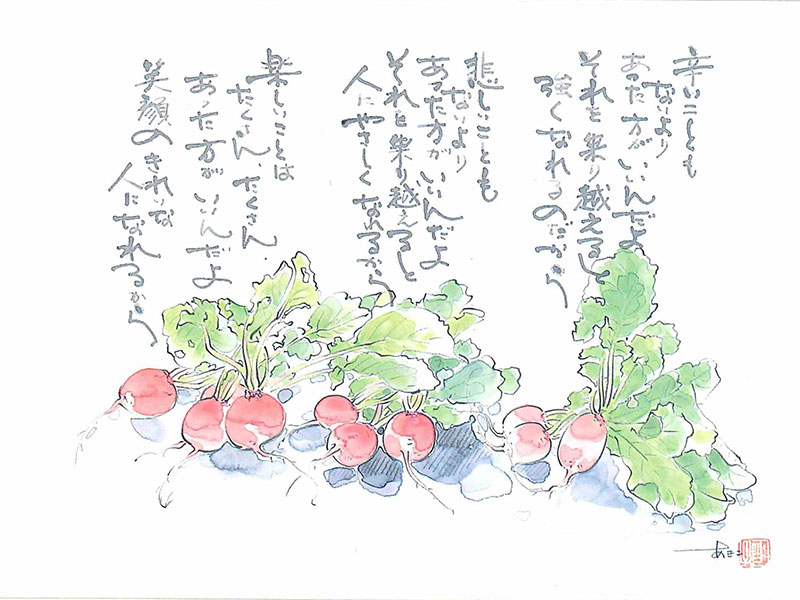 辛いことも
ないより
あった方がいいんだよ
それを乗り越えると
強くなれるのだから
悲しいことも
ないより
あった方がいいんだよ
それを乗り越えると
人にやさしくなれるから
楽しいことは
たくさん、たくさん
あった方がいいんだよ
笑顔のきれいな
人になれるから